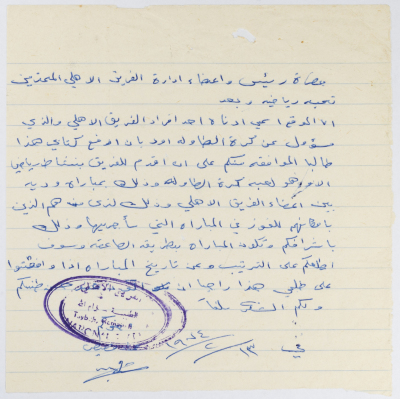 حضرة رئيس واعضاء ادارة الفريق الاهلي المحترمين
تحيه رياضيه وبعد
انا الموقع اسمي ادناه احد افراد الفريق الاهلي والذي
مسؤول عن كرة الطاوله اود بان ارفع كتابي هذا
طالبا الموافقه منكم على ان اقدم للفريق بنشاط رياضي
الا وهو لعبه كرة الطاوله وذلك بمباراه وديه
بين اعضاء الفريق الاهلي وذلك لنرى من هم الذين
بامكانهم للفوز في المباراه التي سأجريها وذلك
باشرافكم وتكون المباراه بطريقه وسوف
اطلعكم على الترتيب وعن تاريخ المباراه اذا وافقتوا
على طلبي هذا راجيا ان
ولكم الشكر سلفاً
في ١٣